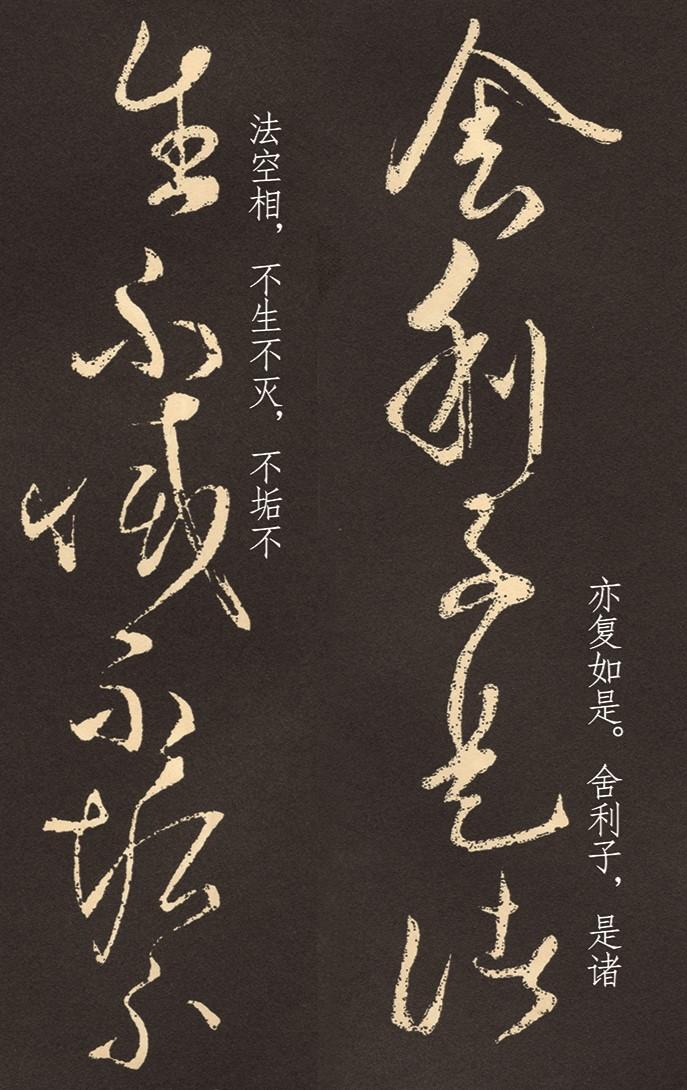 亦复如是。舍利子，是诸
舍利子是諸
法空相，不生不灭，不垢不
生不滅不垢不